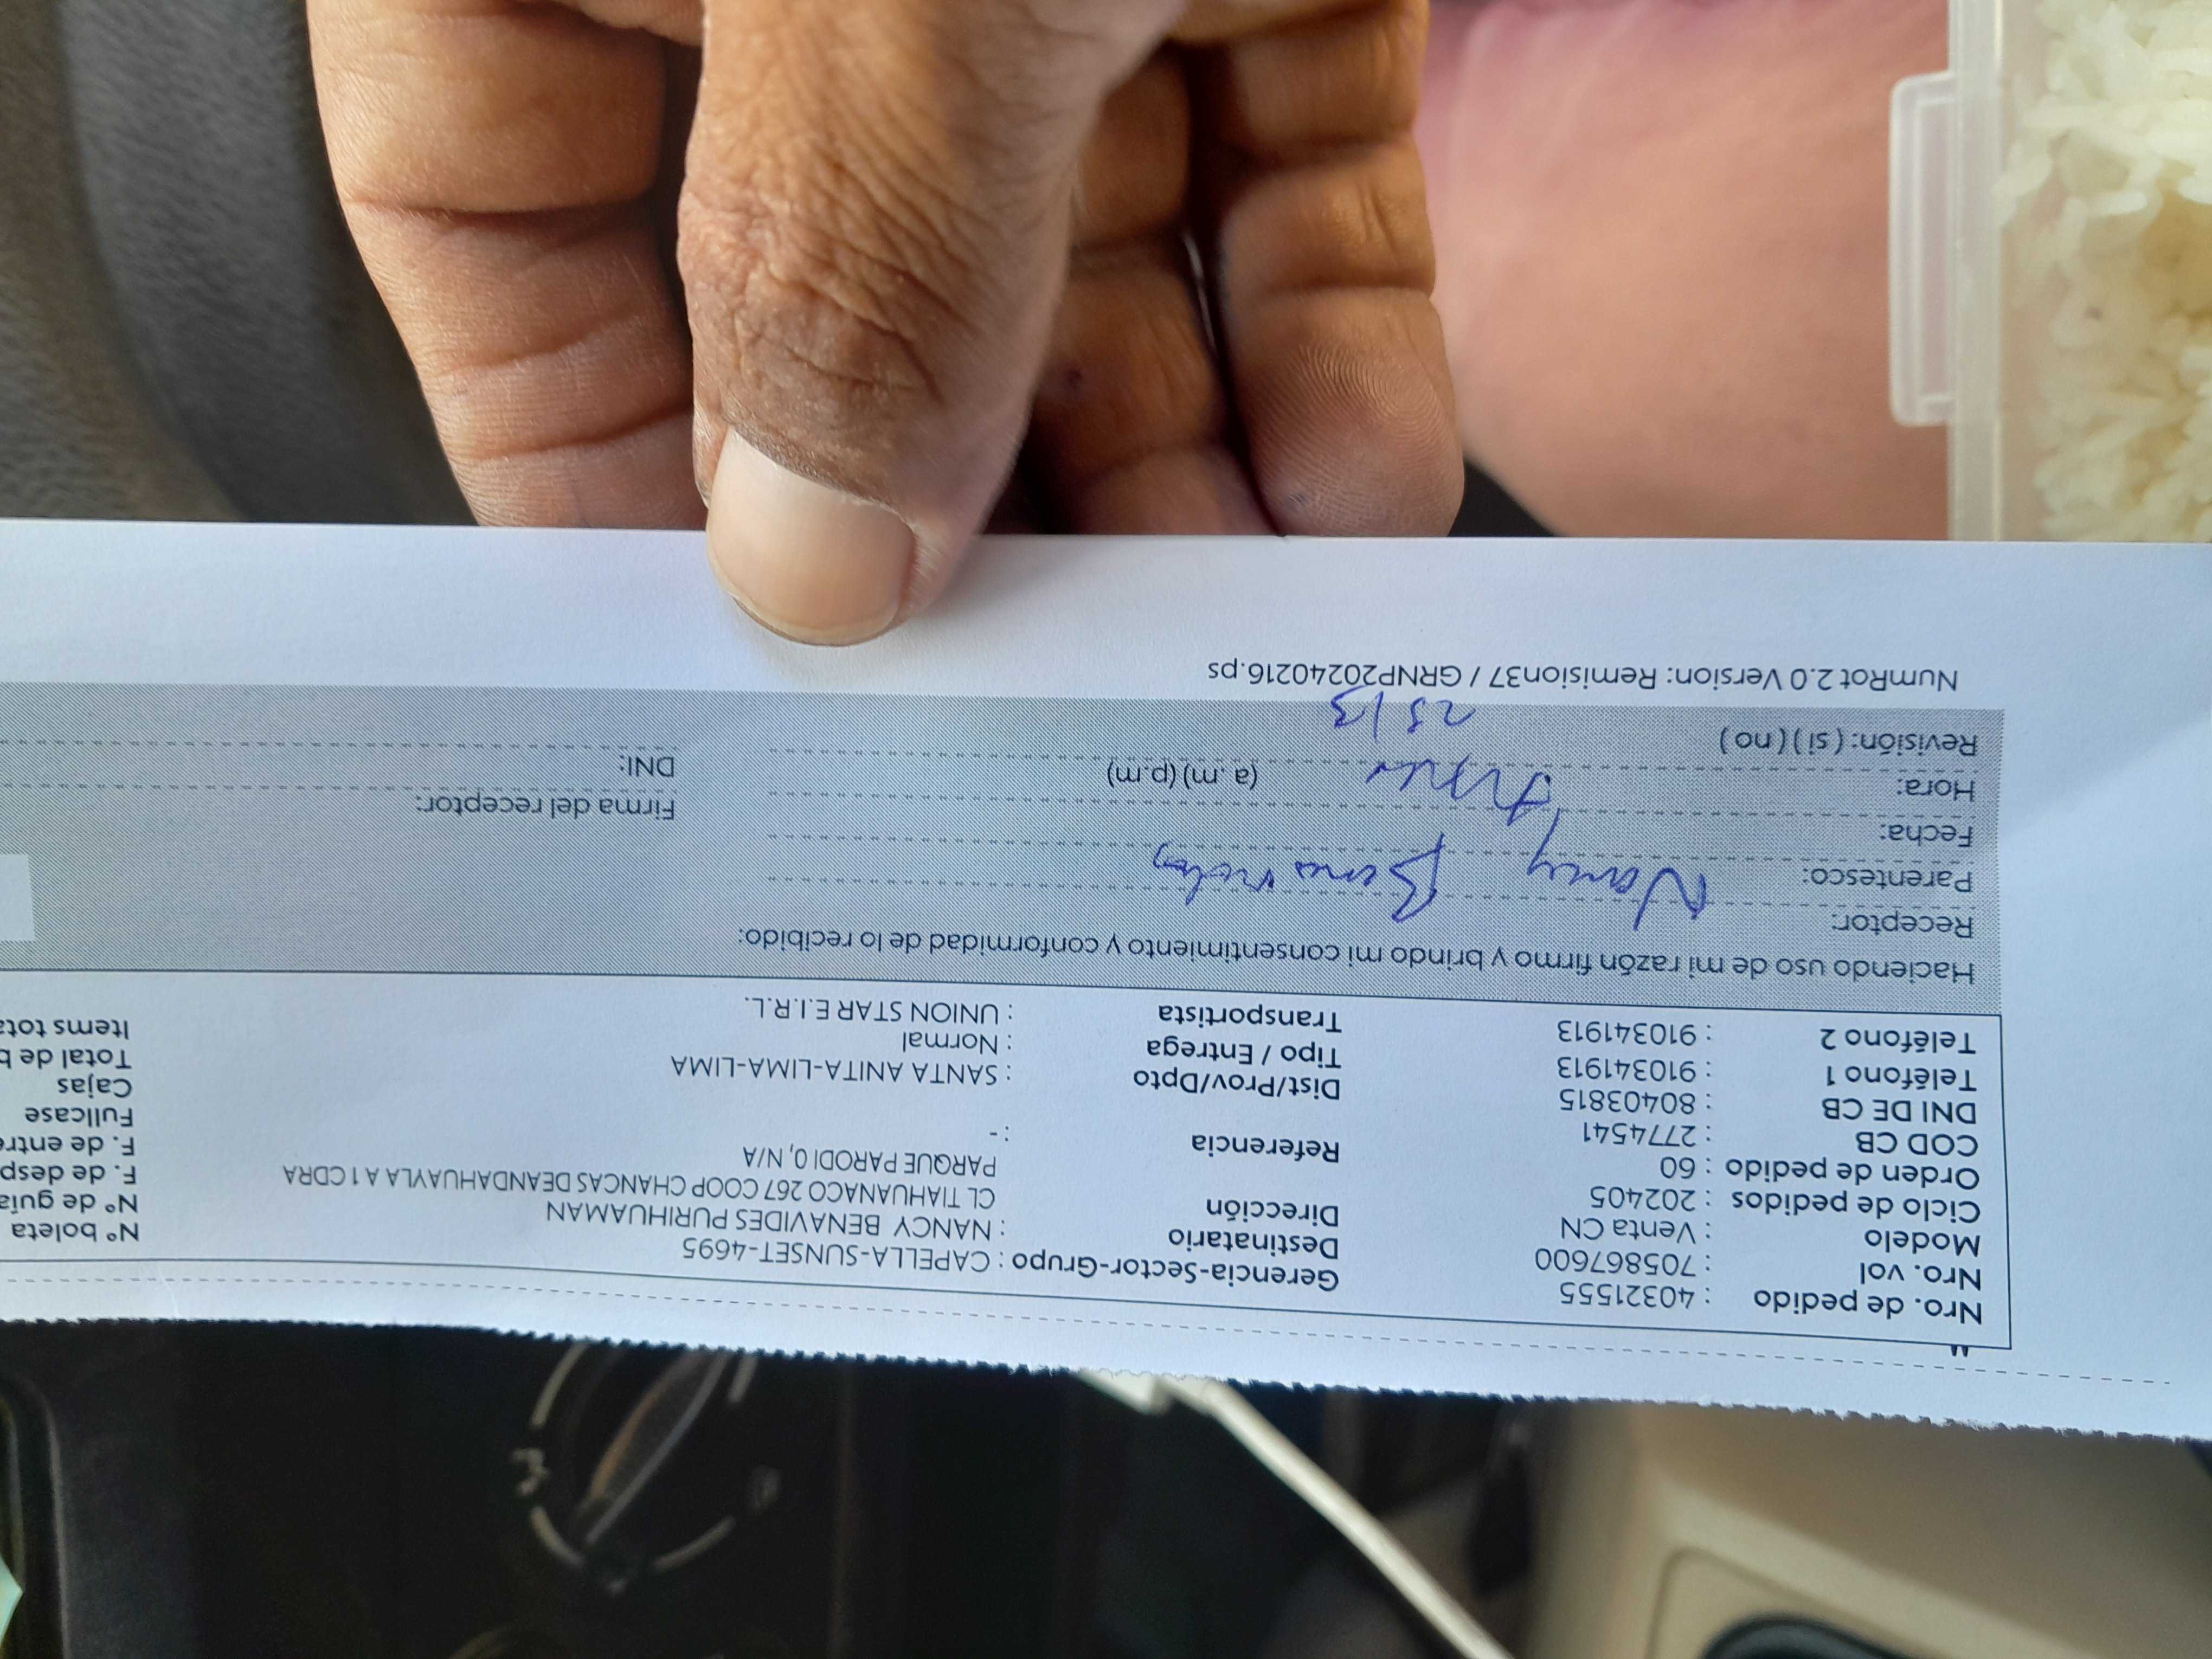 Nro. de pedido : 40321555
Nro. vol : 705867600
Modelo : Venta CN
Ciclo de pedidos : 202405
Orden de pedido : 60
COD CB : 2774541
DNI DE CB : 80403815
Teléfono 1 : 910341913
Teléfono 2 : 910341913
Gerencia-Sector-Grupo : CAPELLA-SUNSET-4695
Destinatario : NANCY BENAVIDES PURIHUAMAN
Dirección CL TIAHUANACO 267 COOP CHANCAS DEANDAHUAYLA A 1 CDRA
PARQUE PARODI 0, N/A
Referencia : -
Dist/Prov/Dpto : SANTA ANITA-LIMA-LIMA
Tipo / Entrega : Normal
Transportista : UNION STAR E.I.R.L.
N° boleta
N° de guía
F. de desp
F. de entre
Fullcase
Cajas
Total de b
Items tota
Haciendo uso de mi razón firmo y brindo mi consentimiento y conformidad de lo recibido:
Receptor: Nancy Benavides
Parentesco:
Fecha:
Hora: (a.m) (p.m)
Revisión: ( si ) ( no ) 25/3
Firma del receptor:
DNI:
NumRot 2.0 Version: Remision37 / GRNP20240216.ps